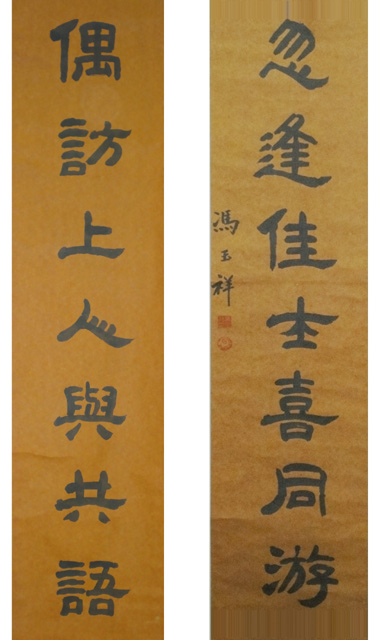 忽逢佳士喜同游
馮玉祥
偶訪上人與共語